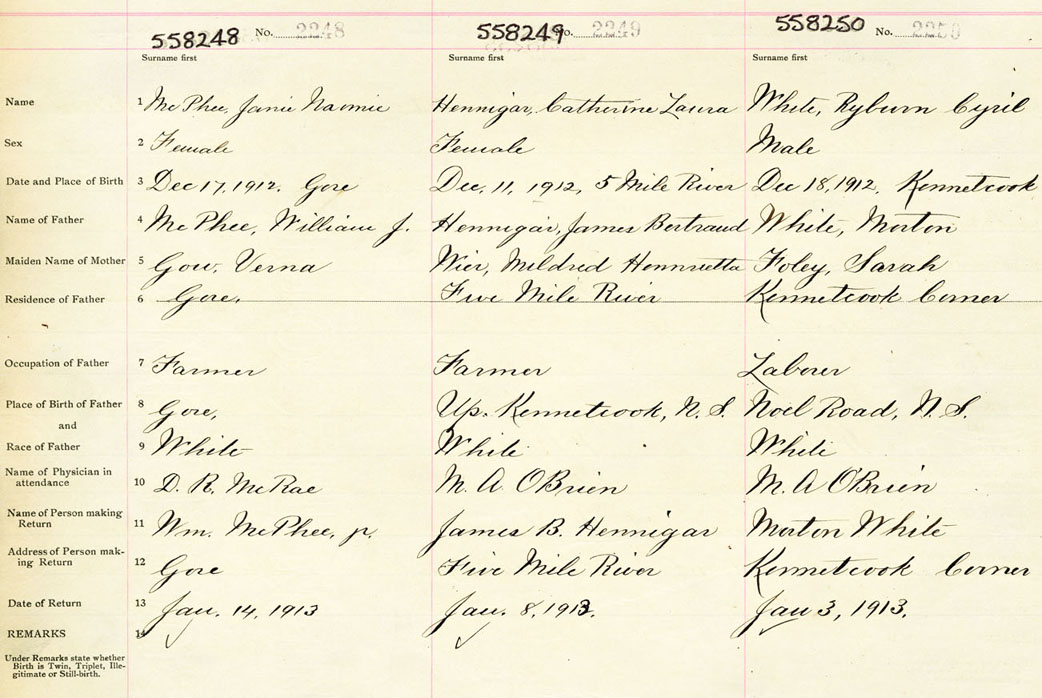 558248 No. 2248 558249 No. 2249 558250 No. 2250
Surname first Surname first Surname first
Name 1 McPhee, Janie Naomie Hennigar, Catherine Laura White, Ryburn Cyril
Sex 2 Female Female Male
Date and Place of Birth 3 Dec 17, 1912. Gore Dec. 11, 1912, 5 Mile River Dec 18, 1912, Kennetcook
Name of Father 4 McPhee, William J. Hennigar, James Bertraud White, Morton
Maiden Name of Mother 5 Gow, Verna Wier, Mildred Hennrietta Foley, Sarah
Residence of Father 6 Gore, Five Mile River Kennetcook Corner
Occupation of Father 7 Farmer Farmer Laborer
Place of Birth of Father 8 Gore, Up. Kennetcook, N. S. Noel Road, N. S.
and
Race of Father 9 White White White
Name of Physician in
attendance 10 D. R. McRae M. A. OBrien M. A O'Brien
Name of Person making
Return 11 Wm. McPhee, jr. James B. Hennigar Morton White
Address of Person mak-
ing Return 12 Gore Five Mile River Kennetcook Corner
Date of Return 13 Jan. 14, 1913 Jan. 8, 1913. Jan 3, 1913.
REMARKS 14
Under Remarks state whether
Birth is Twin, Triplet, Ille-
gitimate or Still-birth.